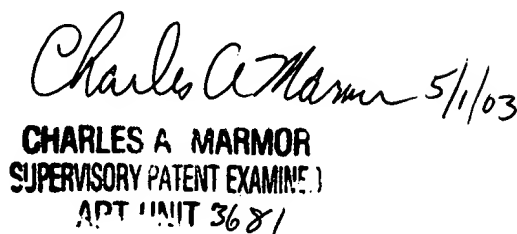 Charles A Marmor 5/1/03
CHARLES A MARMOR
SUPERVISORY PATENT EXAMINER
ART UNIT 3681